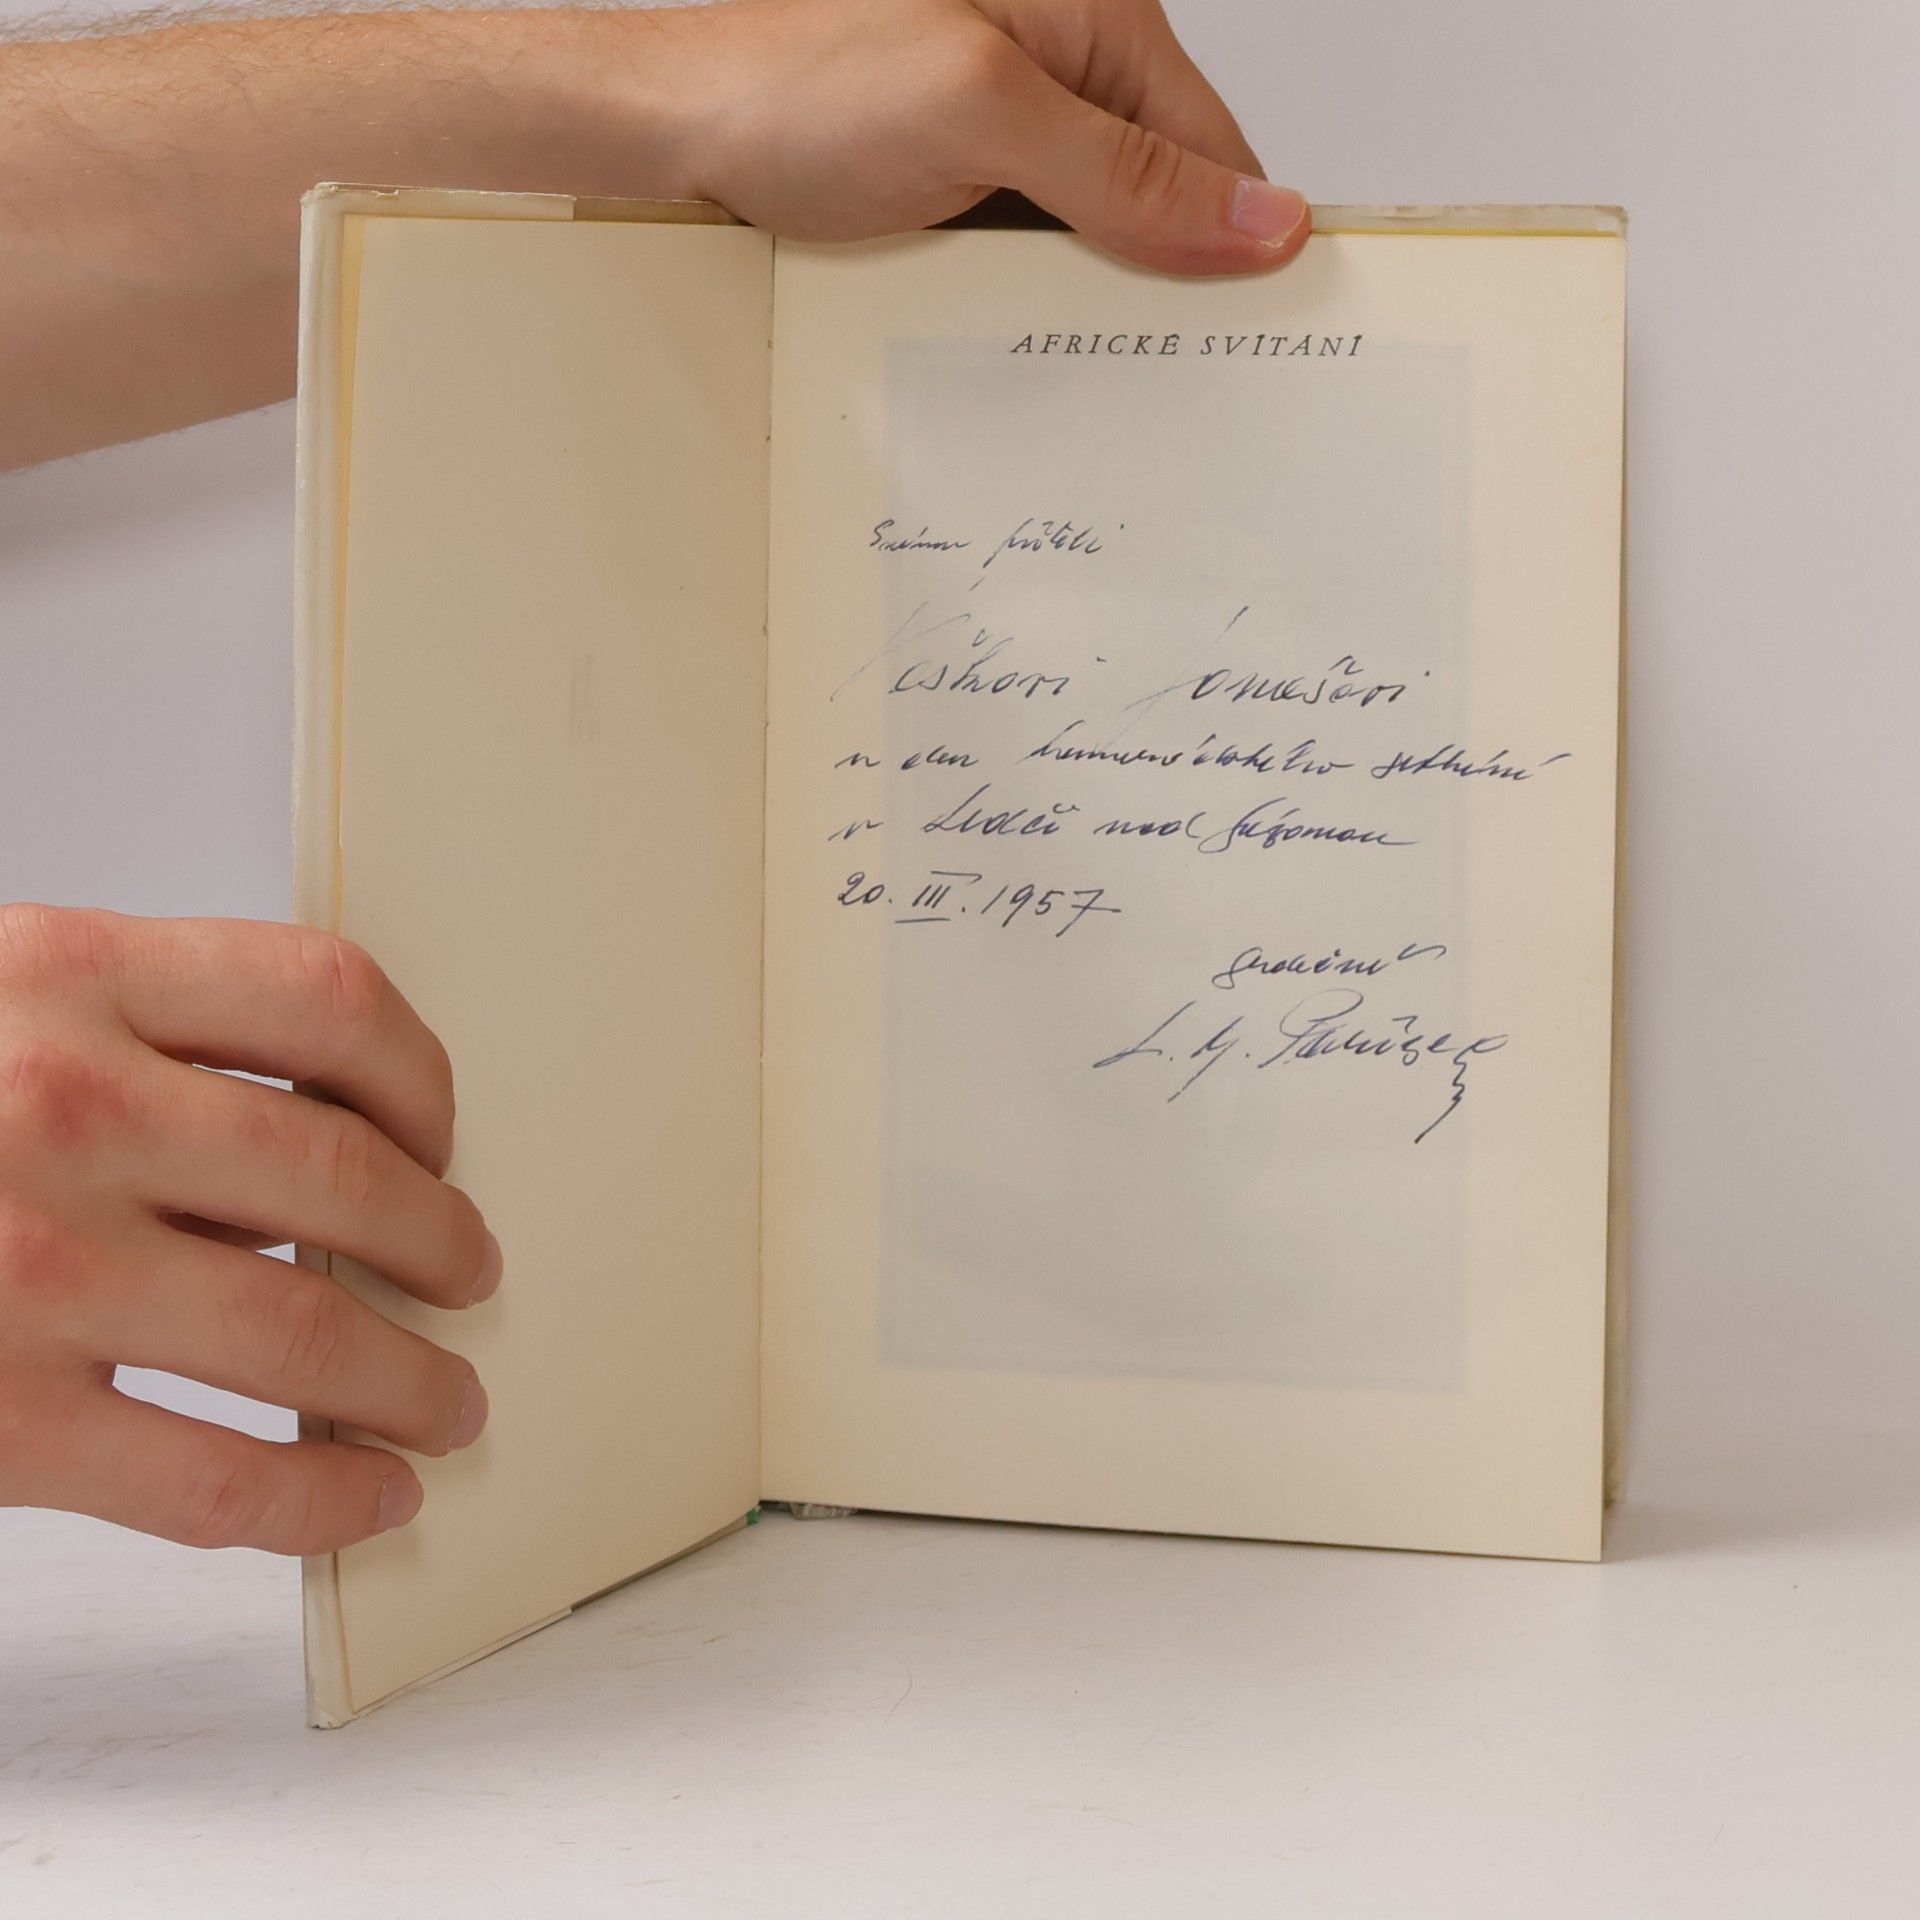 AFRICKÉ SVÍTÁNÍ
Svému příteli
Tomášovi
v den setkání
v Ledči nad Sázavou
20. III. 1957
srdečně
L. M. Pařízek